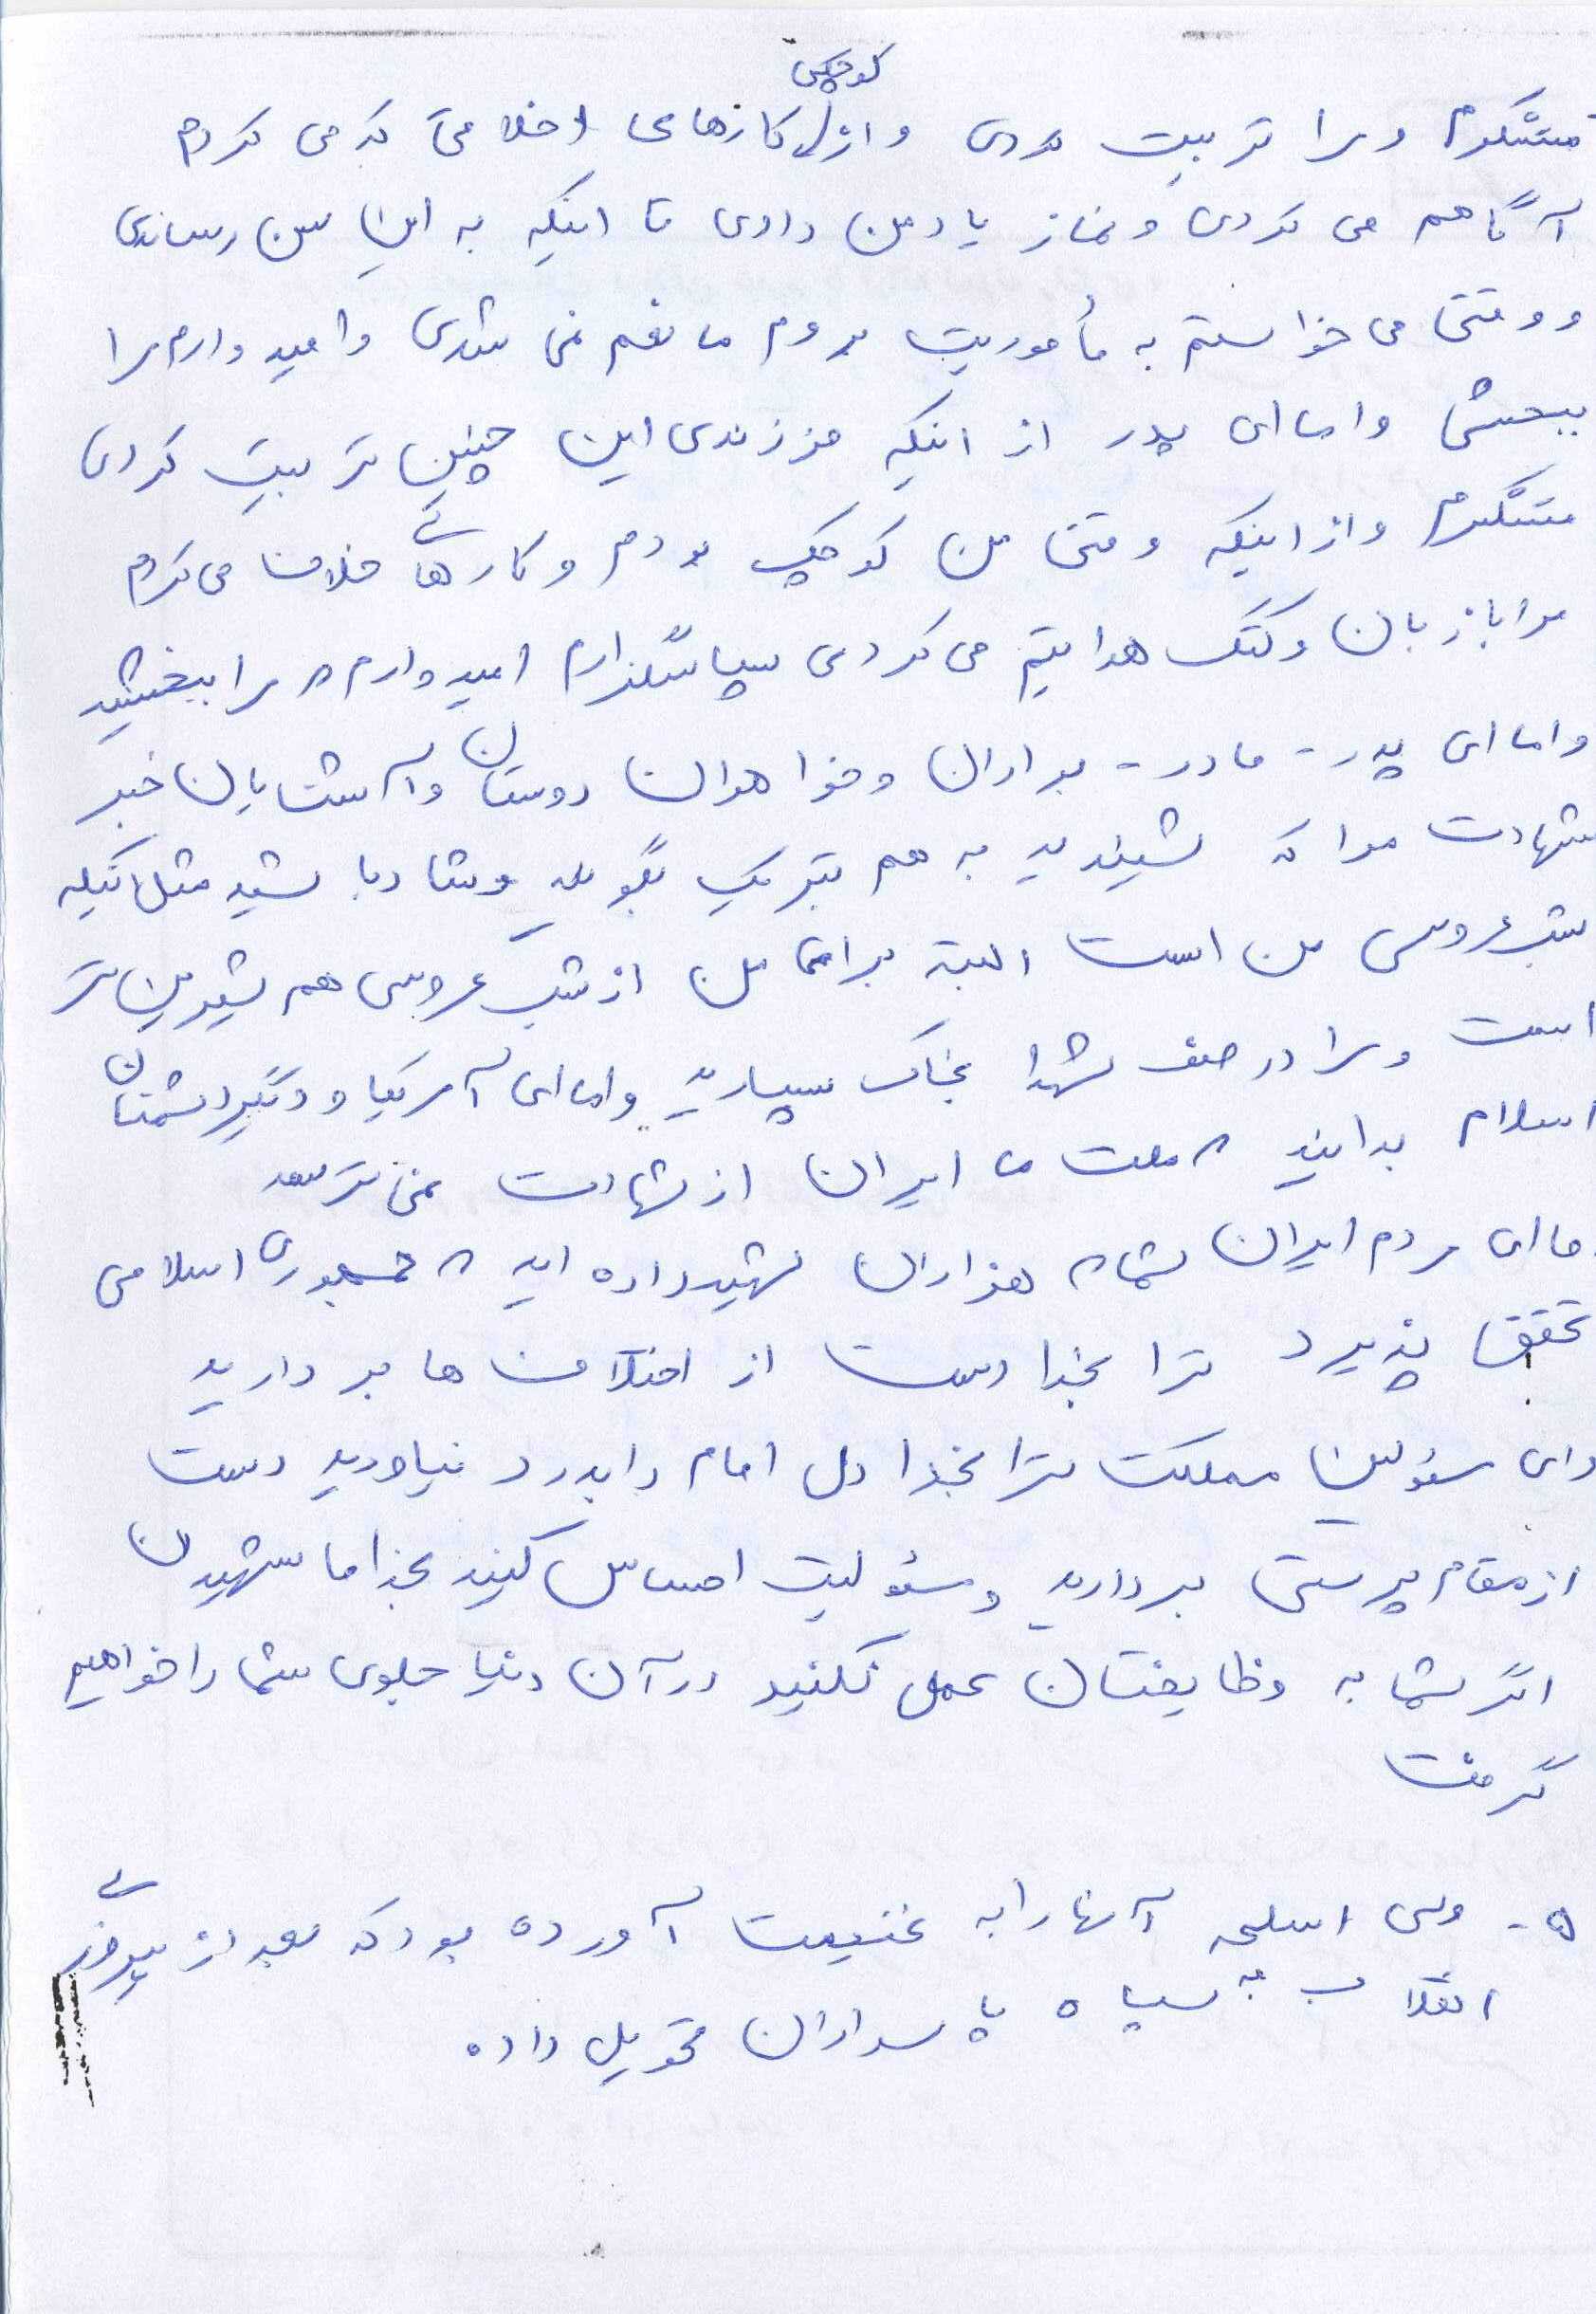 کوچکی
متشکرم و مرا تربیت کردی و از کارهای اخلاقی که می کردم
آگاهم می کردی و نماز یاد من دادی تا اینکه به این سن رساندی
و وقتی می خواستم به مأموریت بروم مانعم نمی شدی و امیدوارم مرا
ببخشی و اما ای پدر از اینکه فرزندی این چنین تربیت کردی
متشکرم و از اینکه وقتی من کوچک بودم و کارهائی خلاف می کردم
مرا با زبان و کتک هدایتم می کردی سپاسگزارم امیدوارم مرا ببخشید
و اما ای پدر - مادر - برادران و خواهران دوستان و آشنایان خبر
شهادت مرا که شنیدید به هم تبریک بگویید و شاد باشید مثل اینکه
شب عروسی من است البته برای من از شب عروسی هم شیرین تر
است و مرا در صف شهدا بخاک سپارید و اما ای آمریکا و دیگر دشمنان
اسلام بدانید که ملت ما ایران از شهادت نمی ترسد
اما ای مردم ایران شما که هزاران شهید داده اید که جمهوری اسلامی
تحقق پذیرد ترا بخدا دست از اختلاف ها بردارید
و ای مسئولین مملکت ترا بخدا دل امام را بدرد نیاورید دست
از مقام پرستی بردارید و مسئولیت احساس کنید بخدا ما شهیدان
اگر شما به وظایفتان عمل نکنید در آن دنیا جلوی شما را خواهیم
گرفت
۵- وی اسلحه آنها را به غنیمت آورده بود که بعد از پیروزی
انقلاب به سپاه پاسداران تحویل داده